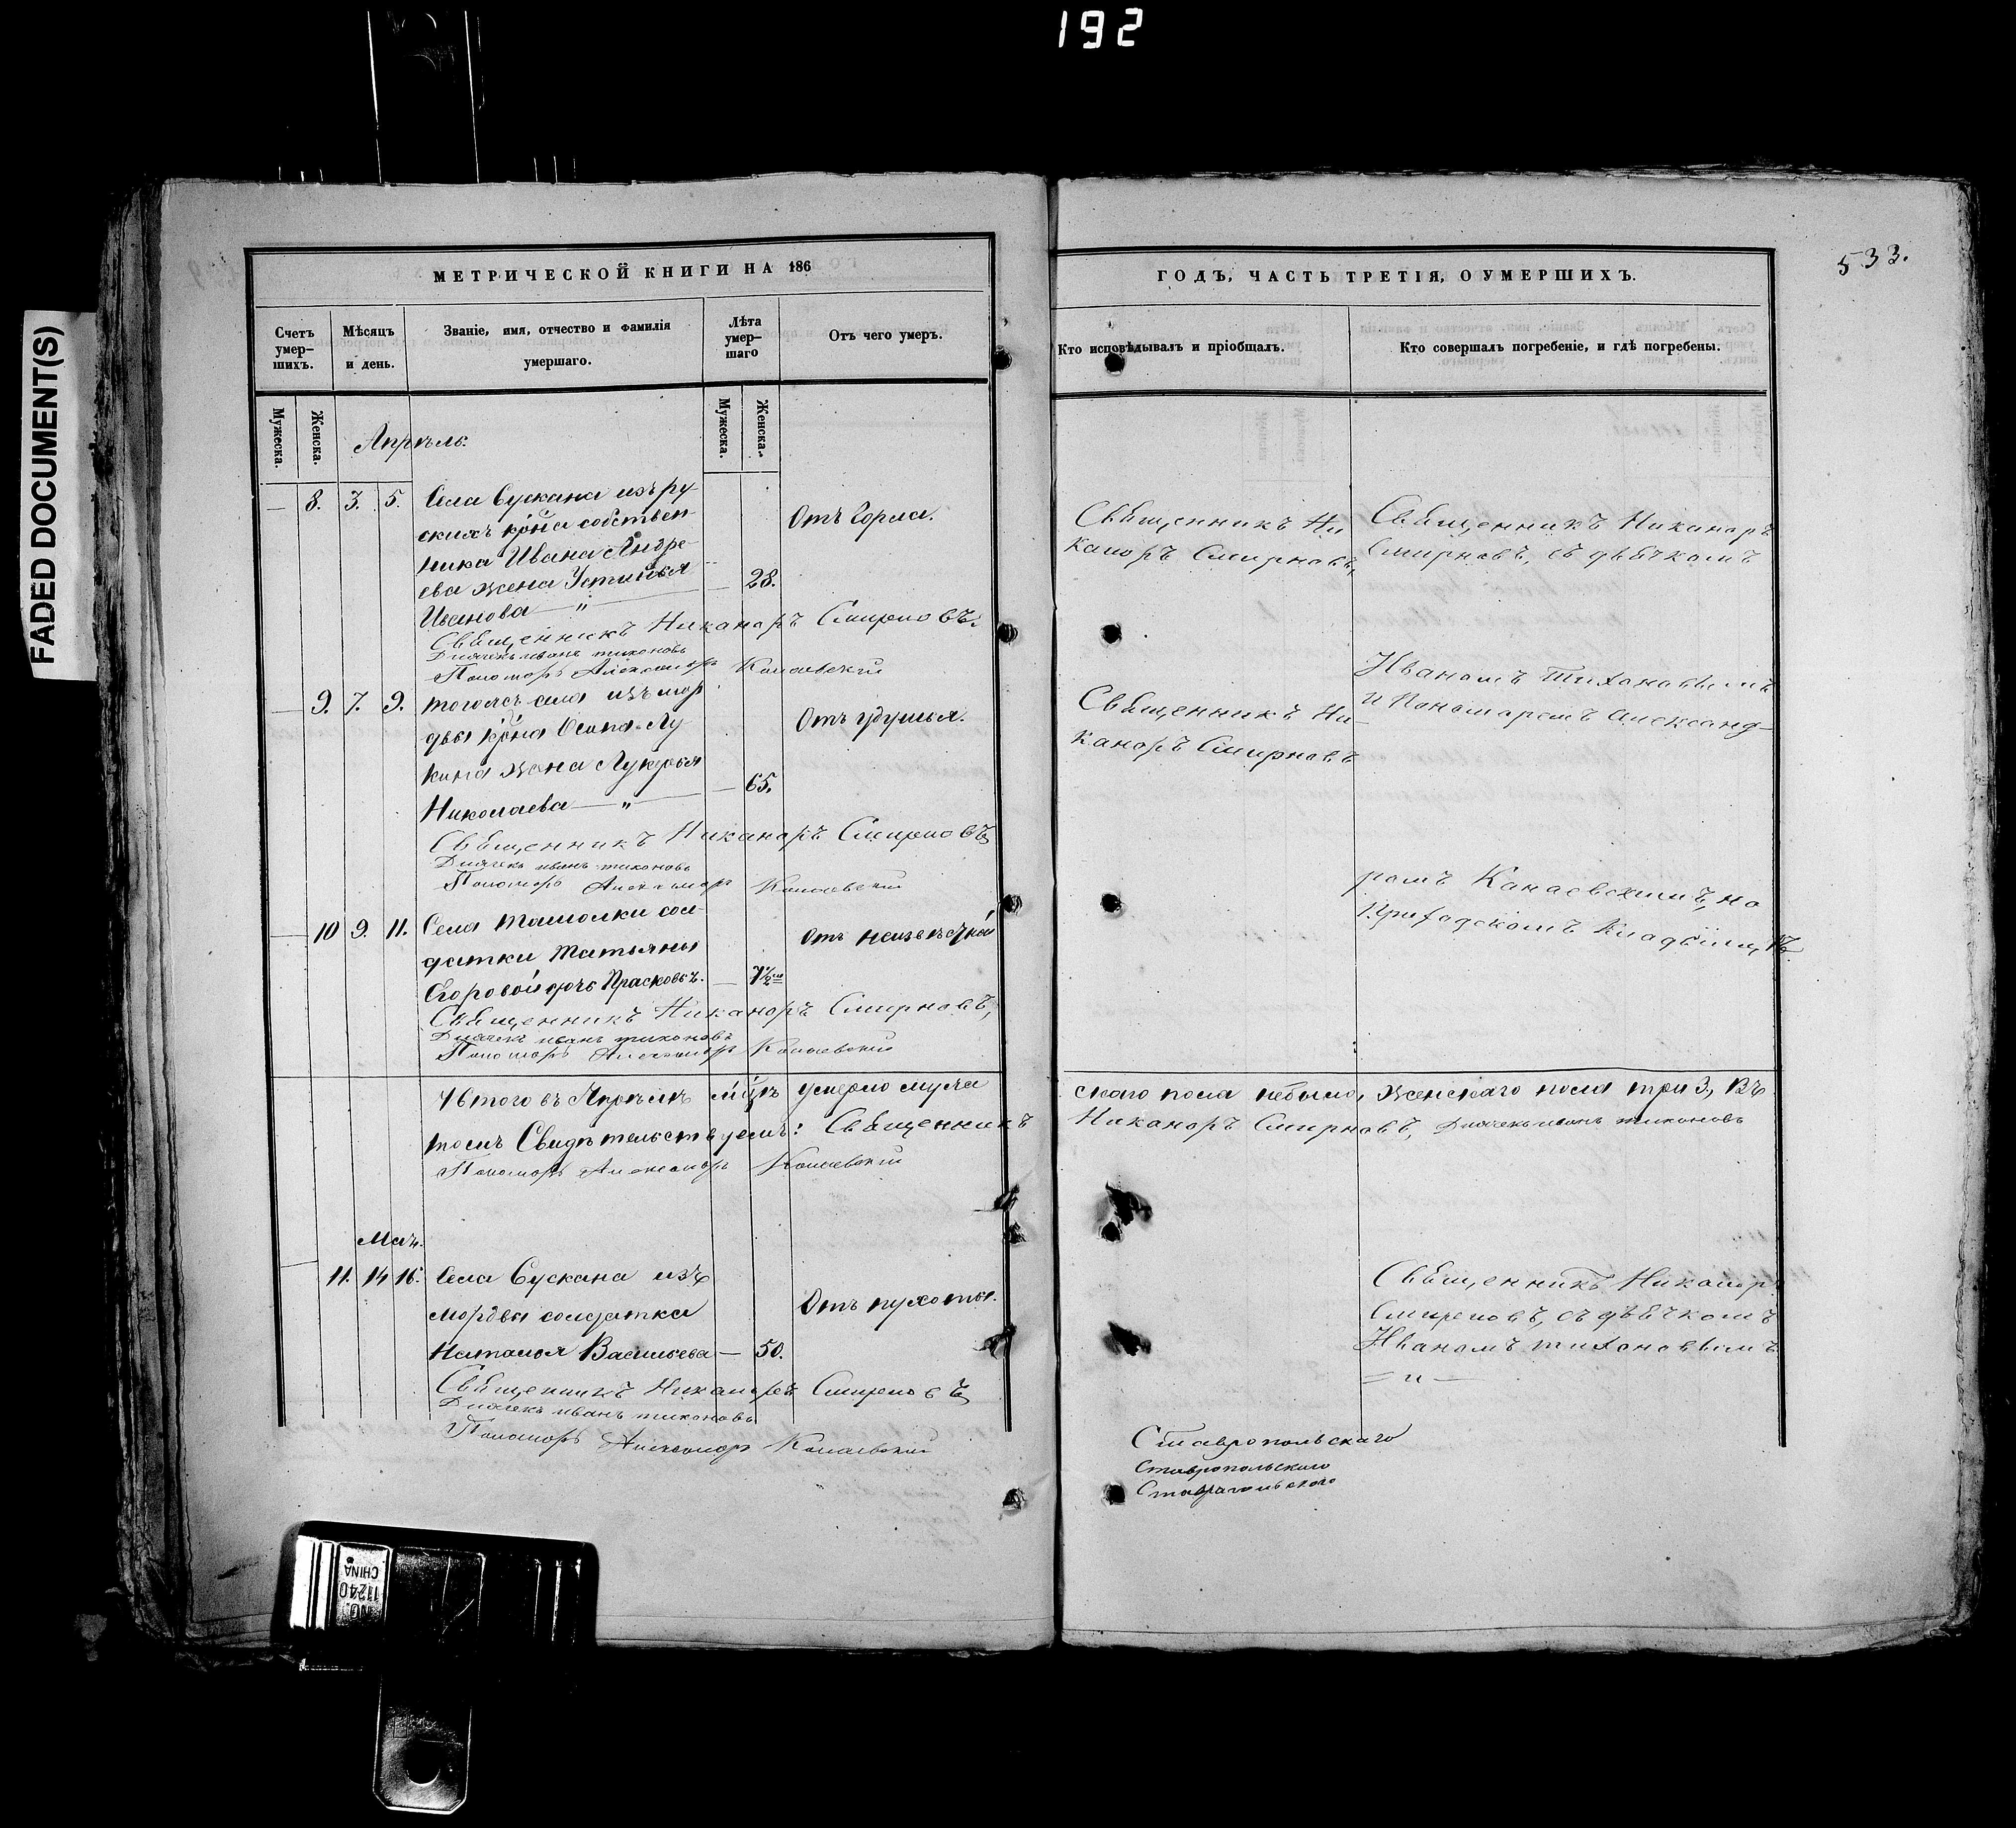 192
FADED DOCUMENT(S)
МЕТРИЧЕСКОЙ КНИГИ НА 186
Счетъ умер-шихъ.
Мѣсяцъ и день.
Званіе, имя, отчество и фамилія умершаго.
Лѣта умер-шаго
Отъ чего умеръ.
Мужеска.
Женска.
Мужеска.
Женска.
Апрѣль.
— 8. 3. 5. Села Сускана изъ ру-
скихъ собствен-
ника Ивана Андре-
ева жена Устинья — 28.
Иванова — „
Отъ Горла.
Священникъ Никаноръ Смирновъ.
Дьячекъ иванъ тихоновъ
Пономарь Александръ Канаевский
— 9. 7. 9. тогожъ села изъ мор
двы Осипа Лу-
кина жена Лукерья — 65.
Николаева — „
Отъ удушья.
Священникъ Никаноръ Смирновъ
Дьячекъ иванъ тихоновъ
Пономарь Александръ Канаевский
— 10 9. 11. Села Ташолки сол-
датки Татьяны
Егоровой дочь Прасковья. — 1/2
Отъ
Священникъ Никаноръ Смирновъ,
Дьячекъ иванъ тихоновъ
Пономарь Александръ Канаевский
Итого въ Апрѣлѣ умерло мужа
томъ Свидѣтельствуемъ: Священникъ
Пономарь Александръ Канаевский
Маѣ.
— 11. 14 16. Села Сускана изъ
мордвы солдатка
Наталья Васильева — 50.
Отъ сухоты.
Священникъ Никаноръ Смирновъ
Дьячекъ иванъ тихоновъ
Пономарь Александръ Канаевский
NO. 11240 CHINA
533.
ГОДЪ, ЧАСТЬ ТРЕТІЯ, О УМЕРШИХЪ.
Кто исповѣдывалъ и пріобщалъ.
Кто совершалъ погребеніе, и гдѣ погребены.
Священникъ Ни
каноръ Смирновъ,
Священникъ Ни-
каноръ Смирновъ
Священникъ Никаноръ
Смирновъ, съ дьячкомъ
Иваномъ Тихоновымъ
и Пономаремъ Александ-
ромъ Канаевскимъ, на
Приходскомъ Кладбищѣ.
скаго пола небыло, женскаго пола три 3, Въ
Никаноръ Смирновъ, Дьячекъ иванъ тихоновъ
Священникъ Никаноръ
Смирновъ, съ дьячкомъ
Иваномъ тихоновымъ
= „ —
Ставропольскаго
Ставропольскаго
Ставропольскаго